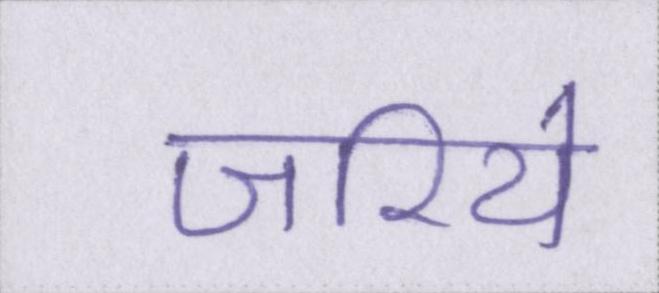 जरिये